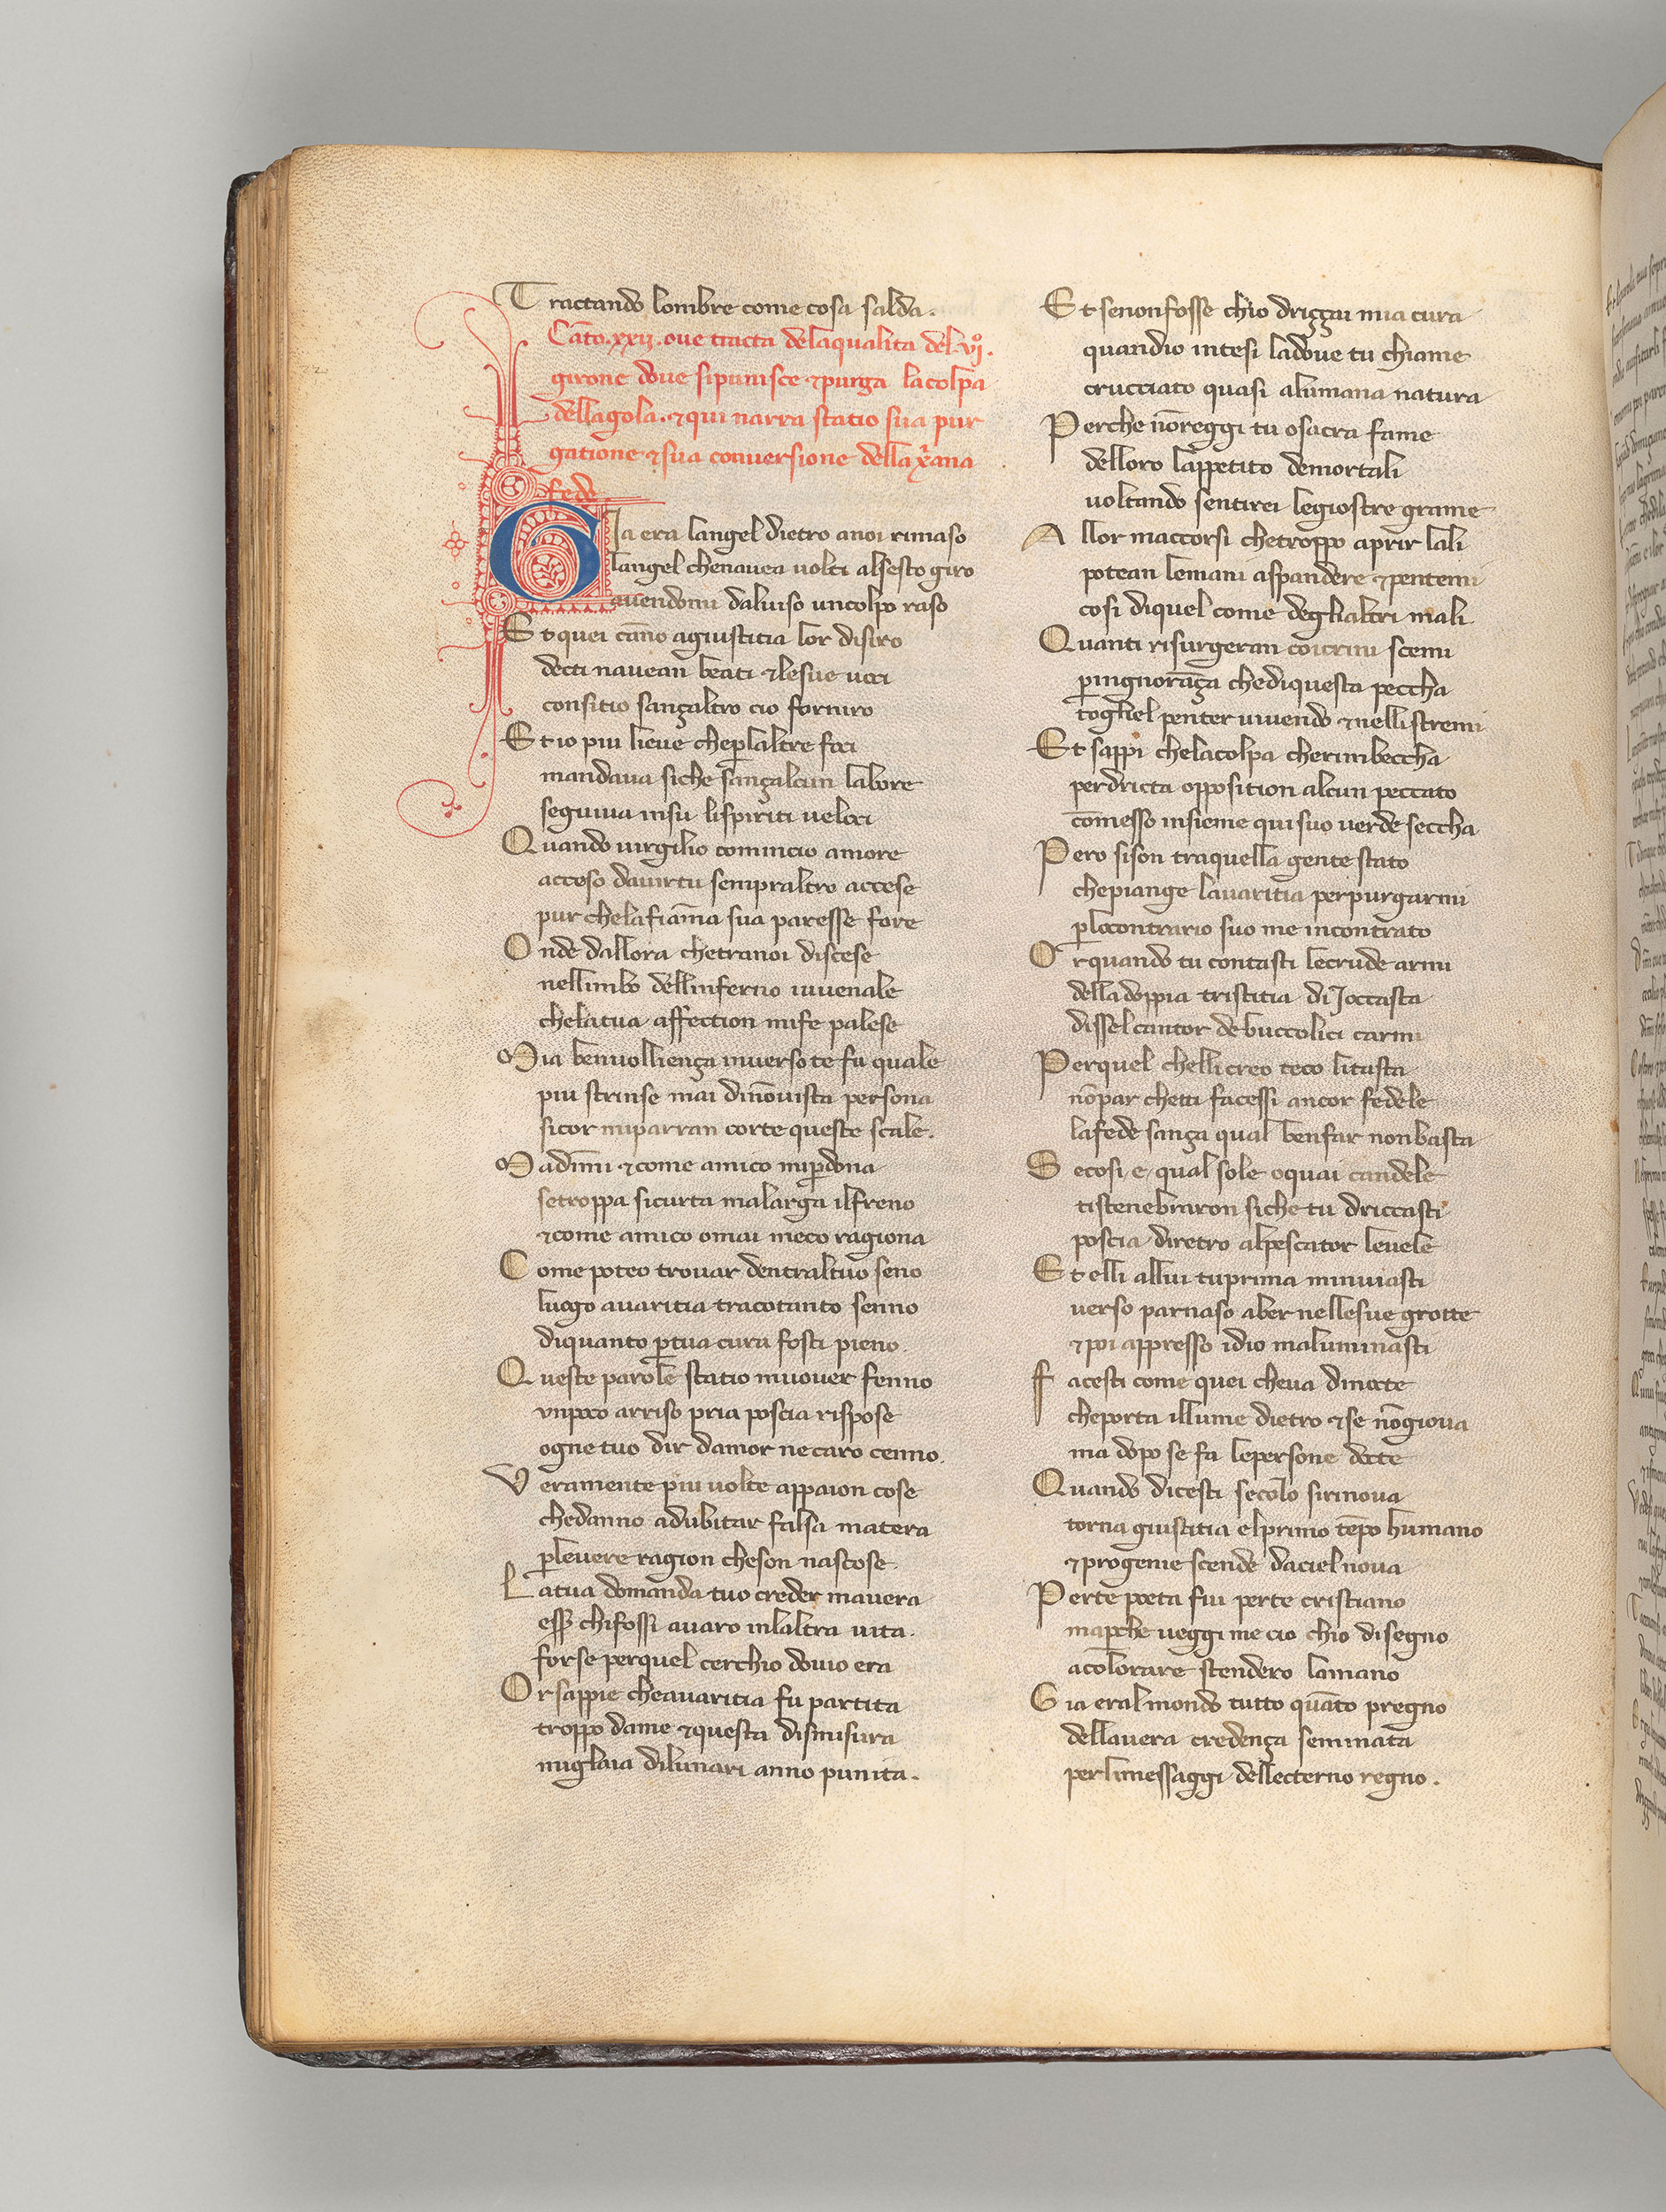 Tractando lombre come cosa salda.
Cāto.xxij. oue tracta delaqualita del .vjº.
girone doue sipunisce ⁊purga lacolpa
dellagola. ⁊qui narra statio sua pur
gatione ⁊sua conuersione della xāna
fede
GIa era langel dietro anoi rimaso
langel chenauea uolti alsesto giro
auendomi daluiso uncolpo raso
Et quei cānno agiustitia lor disiro
decti nauean beati ⁊lesue uoci
consitio sançaltro cio forniro
Et io piu lieue cheꝑlaltre foci
mandaua siche sançalcun labore
seguiua insu lispiriti ueloci
Quando uirgilio comincio amore
acceso dauirtu sempraltro accese
pur chelafiāma sua paresse fore
Onde dallora chetranoi discese
nellimbo dellinferno iuuenale
chelatua affection mife palese
Mia benuolliença inuerso te fu quale
piu strinse mai dinōuista persona
sicor miparran corte queste scale.
Ma dimmi ⁊come amico miꝑdona
setroppa sicurta malarga ilfreno
⁊come amico omai meco ragiona
Come poteo trouar dentraltuo seno
luogo auaritia tracotanto senno
diquanto ꝑtua cura fosti pieno.
Queste parole statio muouer fenno
vnpoco arriso pria poscia rispose
ogne tuo dir damor necaro cenno.
Veramente piu uolte appaion cose
chedanno adubitar falsa matera
ꝑleuere ragion cheson nascose.
La tua domanda tuo creder mauera
esser chifossi auaro inlaltra uita.
forse perquel cerchio douio era
Or sappie cheauaritia fu partita
troppo dame ⁊questa dismisura
migliaia dilunari anno punita.
Et senonfosse chio driççai mia cura
quandio intesi ladoue tu chiame
crucciato quasi alumana natura
Perche nōreggi tu osacra fame
delloro lappetito demortali
uoltando sentirei legiostre grame
Allor maccorsi chetroppo aprir lali
potean lemani aspandere ⁊pentemi
cosi diquel come deglialtri mali
Quanti risurgeran coicrini scemi
ꝑingnorāça chediquesta peccha
togliel penter uiuendo ⁊nellistremi
Et sappi chelacolpa cherimbeccha
perdricta opposition alcun peccato
cōmesso insieme qui suo uerde seccha
Pero sison traquella gente stato
chepiange lauaritia perpurgarmi
ꝑlocontrario suo me incontrato
Or quando tu contasti lecrude armi
della doppia tristitia di Joccasta
dissel cantor de buccolici carmi
Perquel chelli creo teco litasta
nōpar chetti facessi ancor fedele
lafede sança qual benfar nonbasta
Se cosi e qual sole oquai candele
tistenebraron siche tu driccasti
poscia diretro alpescator leuele
Et elli allui tuprima minuiasti
uerso parnaso aber nellesue grotte
⁊poi appresso idio maluminasti
Facesti come quei cheua dinocte
cheporta illume dietro ⁊se nōgioua
ma dopo se fa lepersone docte
Quando dicesti secolo sirinoua
torna giustitia elprimo tēpo humano
⁊progenie scende daciel noua
Per te poeta fui perte cristiano
maꝑche ueggi me cio chio disegno
acolorare stendero lamano
Gia eral mondo tutto quāto pregno
dellauera credença seminata
perlimessaggi delleterno regno.